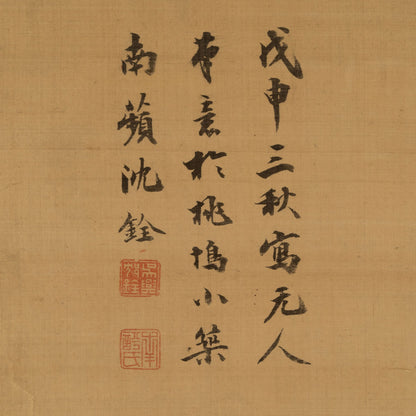 戊申三秋寫元人
本意於桃塢小築
南蘋沈銓